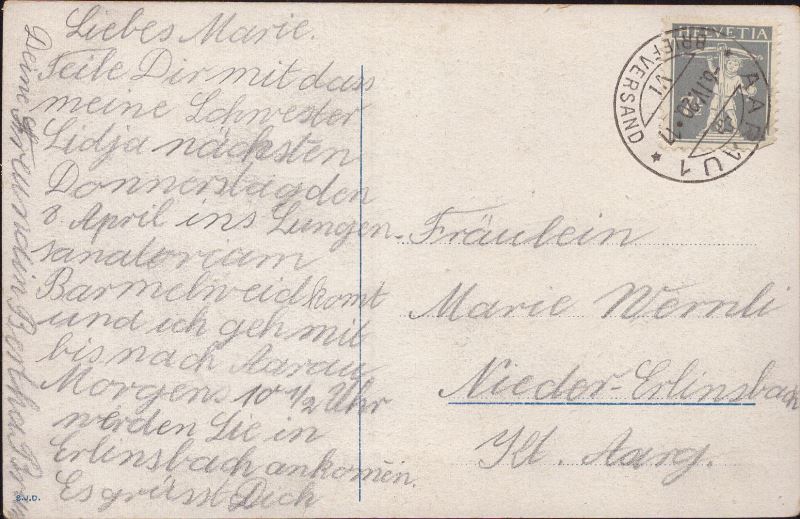 Liebes Marie.
Teile Dir mit dass
meine Schwester
Lidja nächsten
Donnerstag den
8 April ins Lungen-
sanatorium
Barmelweid komt
und ich geh mit
bis nach Aarau
Morgens 10 1/2 Uhr
werden Sie in
Erlinsbach ankomen.
Es grüsst Dich
Deine Freundin Bertha
HELVETIA
AARAU 1
BRIEFVERSAND
VI
Fräulein
Marie Wernli
Nieder-Erlinsbach
Kt. Aarg.
S.J.D.